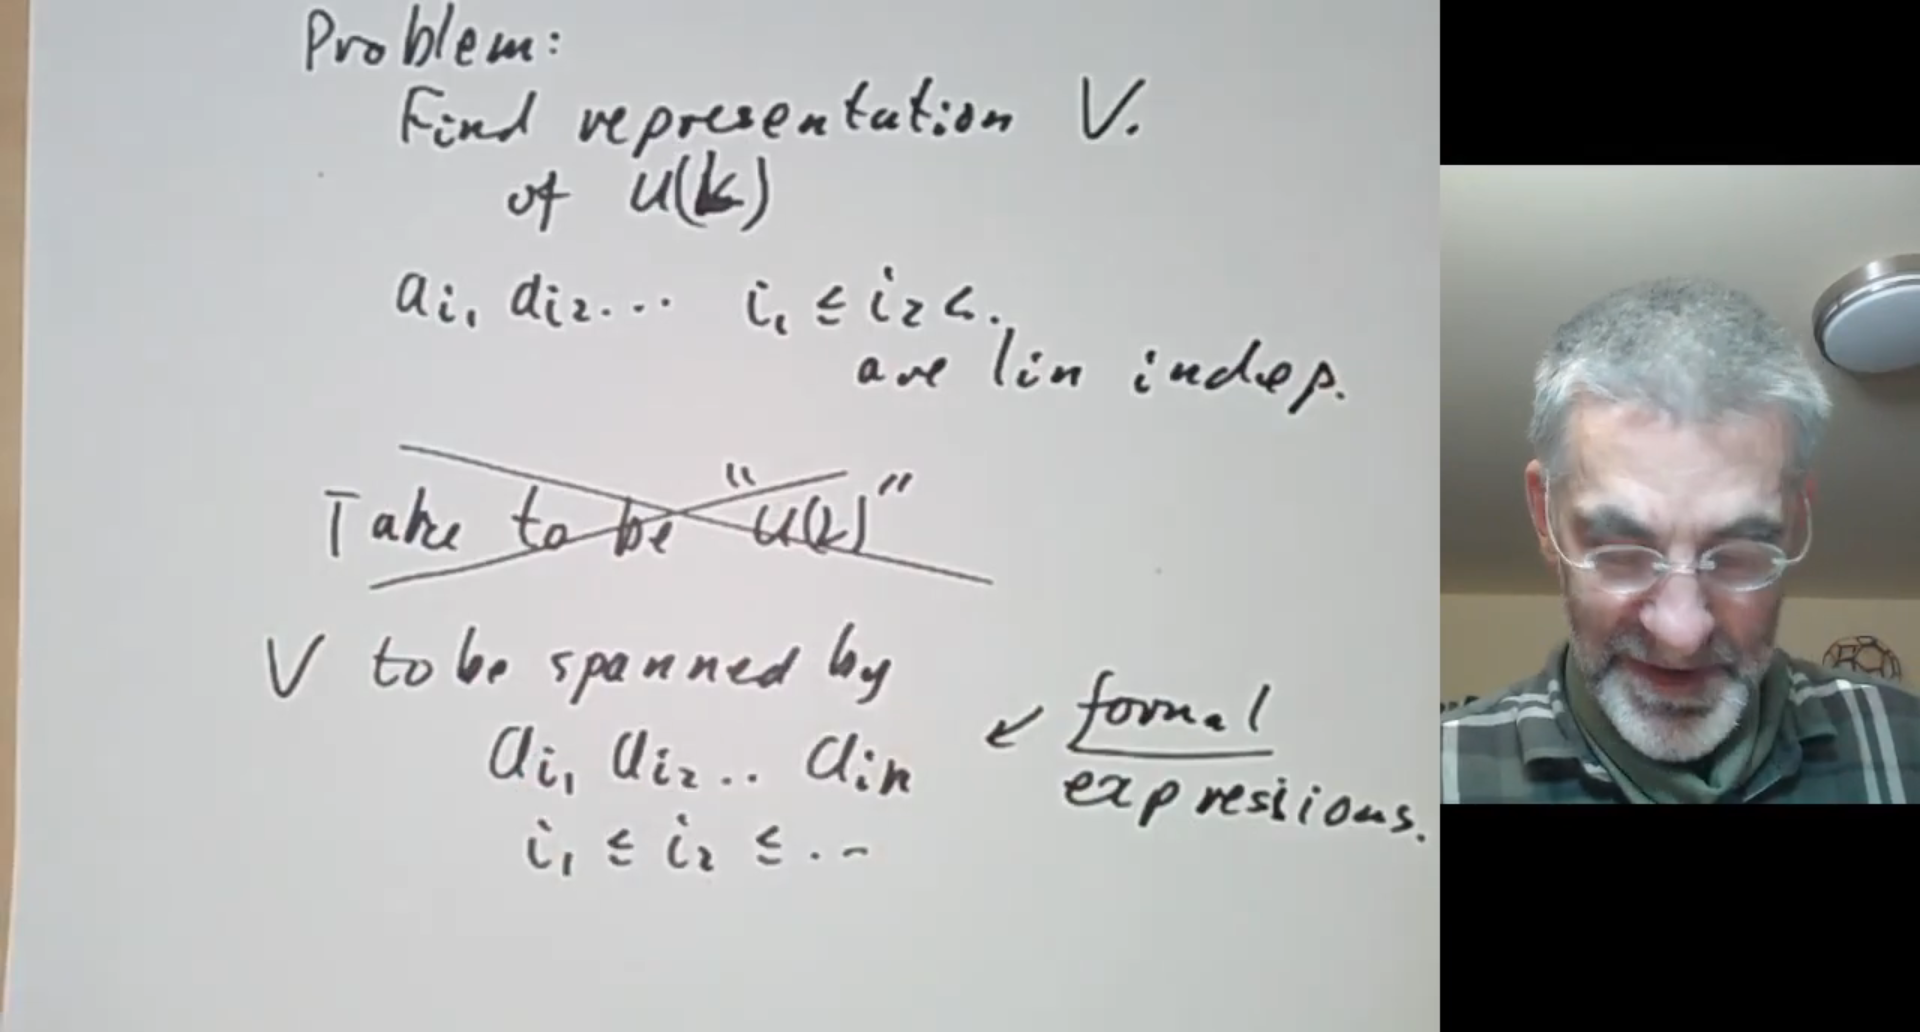 Problem:
Find representation V.
of U(k)
ai₁ ai₂... i₁ ≤ i₂ <.
are lin indep.
Take to be "U(k)"
V to be spanned by
ai₁ ai₂.. ain
i₁ ≤ i₂ ≤ ..
↙ formal
expressions.